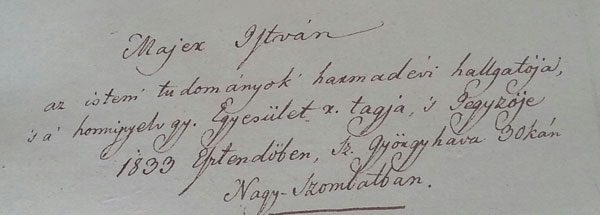 Majer István
az isteni tudományok' harmadévi hallgatója,
's a' honnipyelv gy. Egyesület r. tagja, 's Jegyzője
1833 Esztendőben, Sz. Györgyhava 30kán
Nagy-Szombatban.